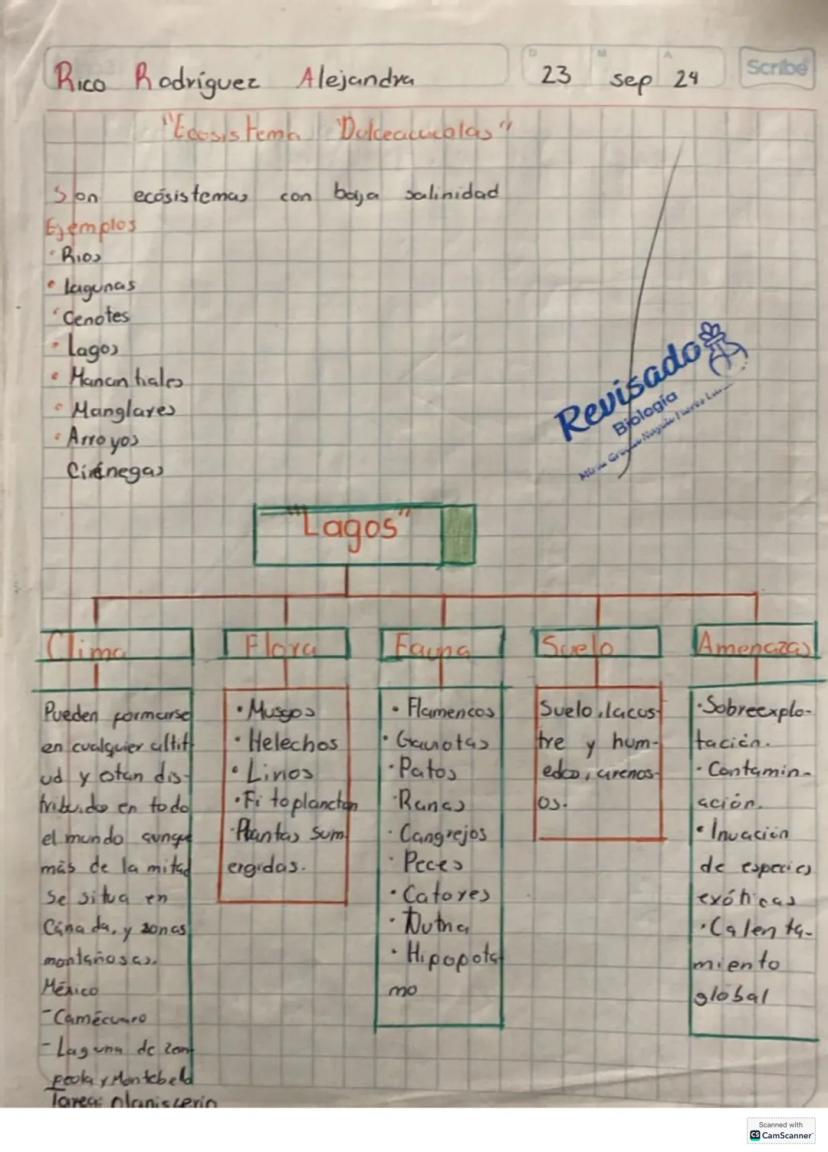 Rico Rodríguez Alejandra
D M A
23 sep 24
Scribe
"Ecosistema Dulceacuicolas"
Son ecósistemas con baja salinidad
Ejemplos
• Rios
• lagunas
• Cenotes
• Lagos
• Manantiales
• Manglares
• Arroyos
Ciénegas
Revisado
Biología
"Lagos"
Clima
Pueden formarse
en cualquier altit
ud y dis-
tribuido en todo
el mundo aunque
más de la mitad
se situa en
Cánada, y zonas
montañosas.
México
- Camécuaro
- Laguna de
y
Tarea:
Flora
• Musgos
• Helechos
• Lirios
• Fitoplancton
• Plantas sum
ergidas.
Fauna
• Flamencos
• Gaviotas
• Patos
• Ranas
• Cangrejos
• Peces
• Catores
• Nutria
• Hipopota
mo
Suelo
Suelo, lacus
tre y hum-
edo, arenos-
os.
Amenazas
• Sobreexplo-
tación.
• Contamin-
ación.
• Invación
de especies
exóticas
• Calenta-
miento
global
Scanned with
CS CamScanner